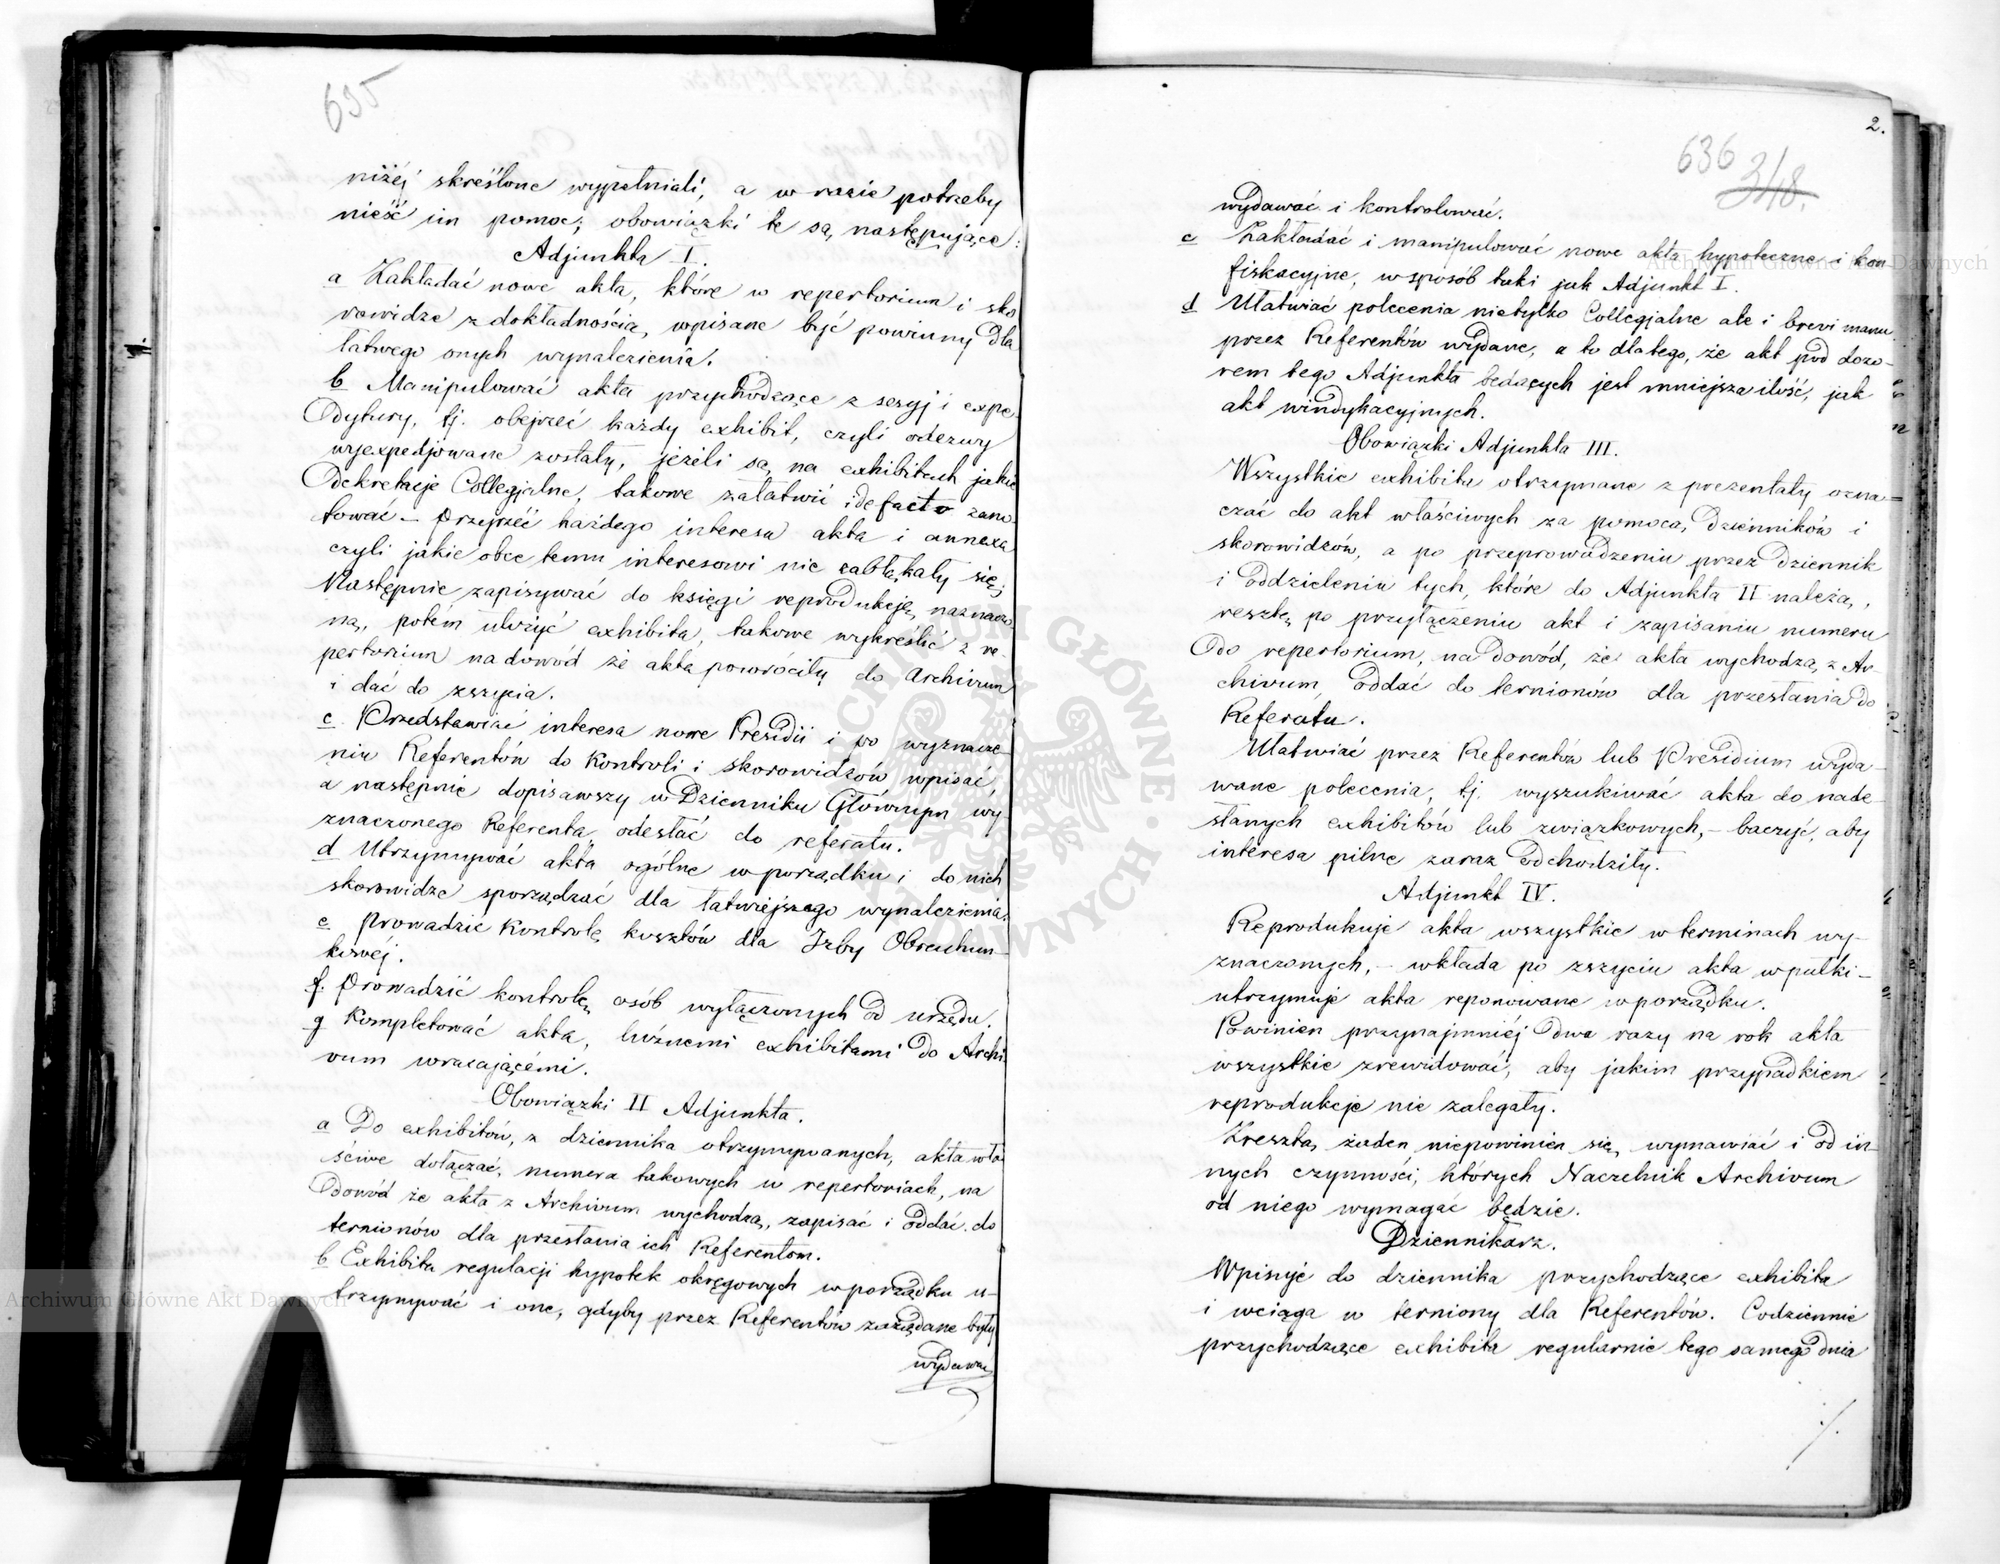 635
niżéj skreślone wypełniali, a w razie potrzeby
nieść im pomoc; obowiązki te są następujące:
Adjunkta I.
a Zakładać nowe akta, które w repertorium i sko
rowidze z dokładnością wpisane być powinny dla
łatwego onych wynalezienia.
b Manipulować akta przychodzące z sesyj i expe
dytury, tj. obejrzeć każdy exhibit, czyli odezwy
wyexpedjowane zostały, jeżeli są na exhibitach jakie
dekretacje Collegjalne, takowe załatwić i de facto zano
tować – przejrzéć każdego interesu akta i annexa
czyli jakie obce temu interesowi nie zabłąkały się,
Następnie zapisywać do księgi reprodukcję naznaczo
ną, potém ułożyć exhibita, takowe wykreślić z re
pertorium na dowód że akta powróciły do Archivum
i dać do zszycia.
c Przedstawiać interesa nowe Presidii i po wyznacze
niu Referentów do Kontroli i skorowidzów wpisać,
a następnie dopisawszy w Dzienniku Głównym wy
znaczonego Referenta, odesłać do referatu.
d Utrzymywać akta ogólne w porządku i do nich
skorowidze sporządzać dla łatwiejszego wynalezienia.
e prowadzić Kontrolę kosztów dla Izby Obrachun–
kowéj.
f. Prowadzić kontrolę osób wyłączonych od urzędu.
g Kompletować akta, luźnemi exhibitami do Archi
vum wracającémi.
Obowiązki II Adjunkta.
a Do exhibitów, z dziennika otrzymywanych, akta wła
ściwe dołączać, numera takowych w repertoriach, na
dowód że akta z Archivum wychodzą, zapisać i oddać do
ternionów dla przesłania ich Referentom.
b Exhibita regulacji hypotek okręgowych w porządku u–
trzymywać i one, gdyby przez Referentów zażądane były
wydawać
2.
636
318.
wydawać i kontrolować.
c Zakładać i manipulować nowe akta hypoteczne i kon
fiskacyjne, w sposób taki jak Adjunkt I.
d Ułatwiać polecenia nietylko Collegjalne ale i brevi manu
przez Referentów wydane, a to dlatego, że akt pod dozo–
rem tego Adjunkta będących jest mniejsza ilość, jak
akt windykacyjnych.
Obowiązki Adjunkta III.
Wszystkie exhibita otrzymane z prezentaty ozna–
czać do akt właściwych za pomocą dzienników i
skorowidzów, a po przeprowadzeniu przez dziennik
i oddzieleniu tych, które do Adjunkta II należą,
resztę po przyłączeniu akt i zapisaniu numeru
do repertorium, na dowód, że akta wychodzą z Ar–
chivum, oddać do ternionów dla przesłania do
Referatu.
Ułatwiać przez Referentów lub Presidium wyda–
wane polecenia, tj. wyszukiwać akta do nade–
słanych exhibitów lub związkowych, – baczyć, aby
interesa pilne zaraz odchodziły.
Adjunkt IV.
Reprodukuje akta wszystkie w terminach wy–
znaczonych, – wkłada po zszyciu akta w pułki –
utrzymuje akta reponowane w porządku.
Powinien przynajmniéj dwa razy na rok akta
wszystkie zrewidować, aby jakim przypadkiem
reprodukcje nie zalegały.
Zresztą żaden niepowinien się wymawiać i od in–
nych czynności, których Naczelnik Archivum
od niego wymagać będzie.
Dziennikarz.
Wpisuje do dziennika przychodzące exhibita
i wciąga w terniony dla Referentów. Codziennie
przychodzące exhibita regularnie tego samego dnia
./.
ARCHIWUM GŁÓWNE AKT DAWNYCH
Archiwum Główne Akt Dawnych
Archiwum Główne Akt Dawnych